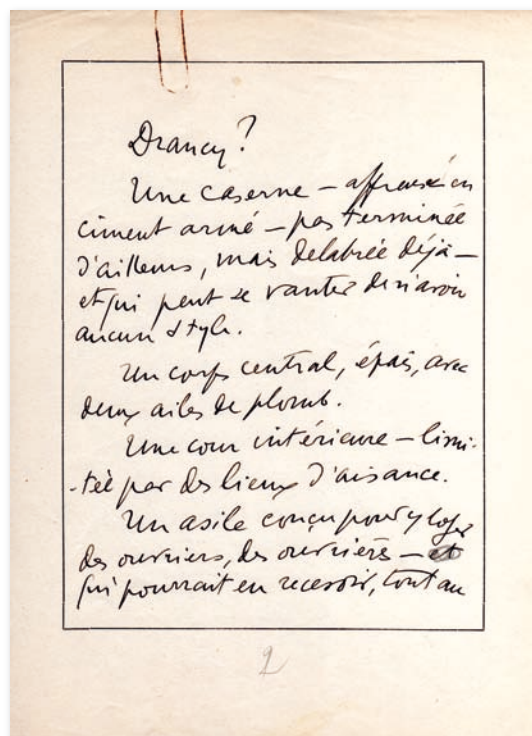 Drancy ?
Une caserne – affreuse en
ciment armé – pas terminée
d'ailleurs, mais delabrée déjà –
et qui peut se vanter de n'avoir
aucun style.
Un corps central, épais, avec
deux ailes de plomb.
Une cour intérieure – limi-
-tée par des lieux d'aisance.
Un asile conçu pour y loger
des ouvriers, des ouvrières –
qui pourrait en recevoir, tout au
2